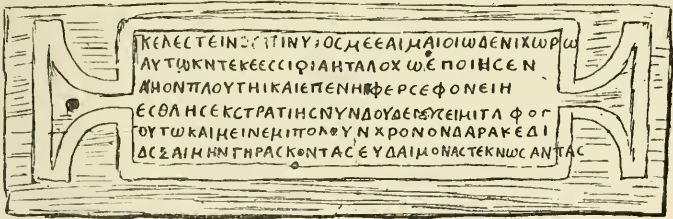 ΚΕΛΕΣΤΕΙΝ ΠΙΝΥ ΟΣΜΕΕΔΙΜΑΙΟΙΩΔΕΝΙΧΩΡΩ
ΑΥΤΩΚΝΤΕΚΕΕΣΣΙΦΙΛΗΤΑΛΟΧΩΕΠΟΙΗΣΕΝ
ΔΗΟΝΠΛΟΥΤΗΙΚΑΙΕΠΕΝΗ ΦΕΡΣΕΦΟΝΕΙΗ
ΕΣΘΛΗΣΕΚΣΤΡΑΤΙΗΣΝΥΝΔΟΥΔΕ ΕΙΜΙΤΛΦΟΓ
ΟΥΤΩΚΑΙΜΕΙΝΕΜΙΠΟΛΟΥΝΧΡΟΝΟΝΔΑΡΑΚΕΔΙ
ΔΕΞΑΙΜΗΝΓΗΡΑΣΚΟΝΤΑΣΕΥΔΑΙΜΟΝΑΣΤΕΚΝΩΣΑΝΤΑΣ